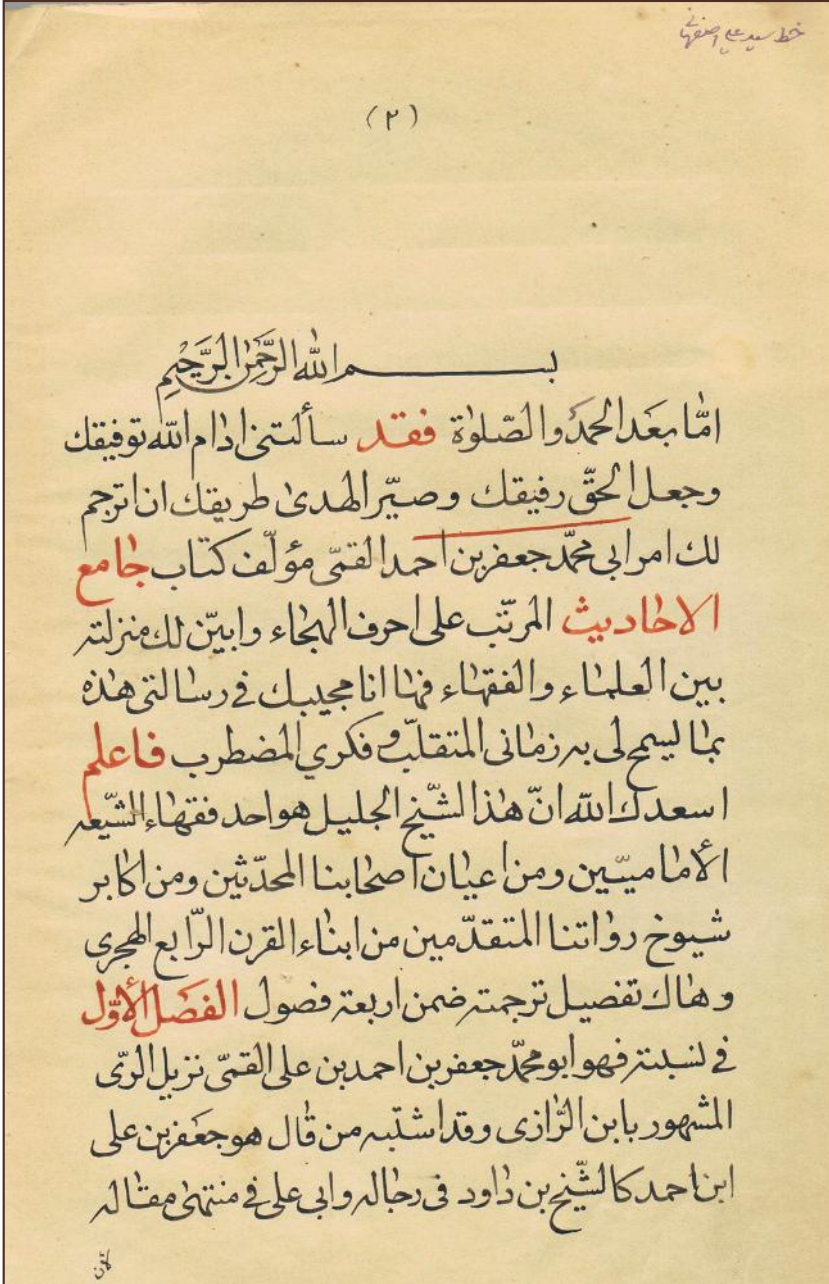 خط سید علی اصفهانی
(۲)
بسم الله الرَّحْمٰنِ الرَّحيْمِ
امّا بعَد الحمدُ والصّلوٰة فقد سألتنى ادٰام الله توفيقك
وجعل الحقّ رفيقك وصيّر الهدىٰ طريقك ان اترجم
لك امر ابى محمّد جعفر بن احمد القمّى مؤلّف كتاب جٰامع
الاحٰاديث المرتّب على احرف الهجٰاء وابيّن لك منزلته
بين العلمٰاء والفقهٰاء فهٰا انا مجيبك فى رسٰالتى هٰذه
بمٰا ليسمح لى به زمٰانى المتقلّب وفكري المضطرب فاعلم
اسعدك الله انّ هٰذا الشّيخ الجليل هو احد فقهٰاء الشّيعه
الأمٰاميّين ومن اعيٰان اصحٰابنا المحدّثين ومن اكٰابر
شيوخ روٰاتنا المتقدّمين من ابنٰاء القرن الرّابع الهجرى
وهٰاك تفصيل ترجمته ضمن اربعة فصول الفصَل الأوّل
فى نسبته فهو ابو محمّد جعفر بن احمد بن على القمّى نزيل الرّى
المشهور بابن الرّٰازى وقد اشتبه من قٰال هو جعَفر بن على
ابن احمد كالشّيخ بن دٰاود فى رجٰاله وابى على فى منتهىٰ مقٰاله
لأن